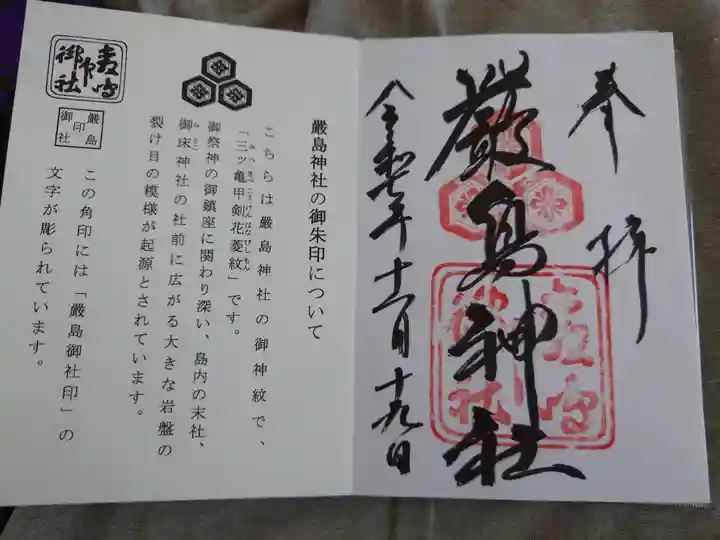 奉拝
嚴島神社
令和七年十一月十九日
嚴島神社の御朱印について
こちらは嚴島神社の御神紋で、
「三ッ亀甲剣花菱紋」です。
みつきっこうけんはなびしもん
御祭神の御鎮座に関わり深い、島内の末社、
御床神社の社前に広がる大きな岩盤の
みとこ
裂け目の模様が起源とされています。
嚴島
御社
印
この角印には「嚴島御社印」の
文字が彫られています。